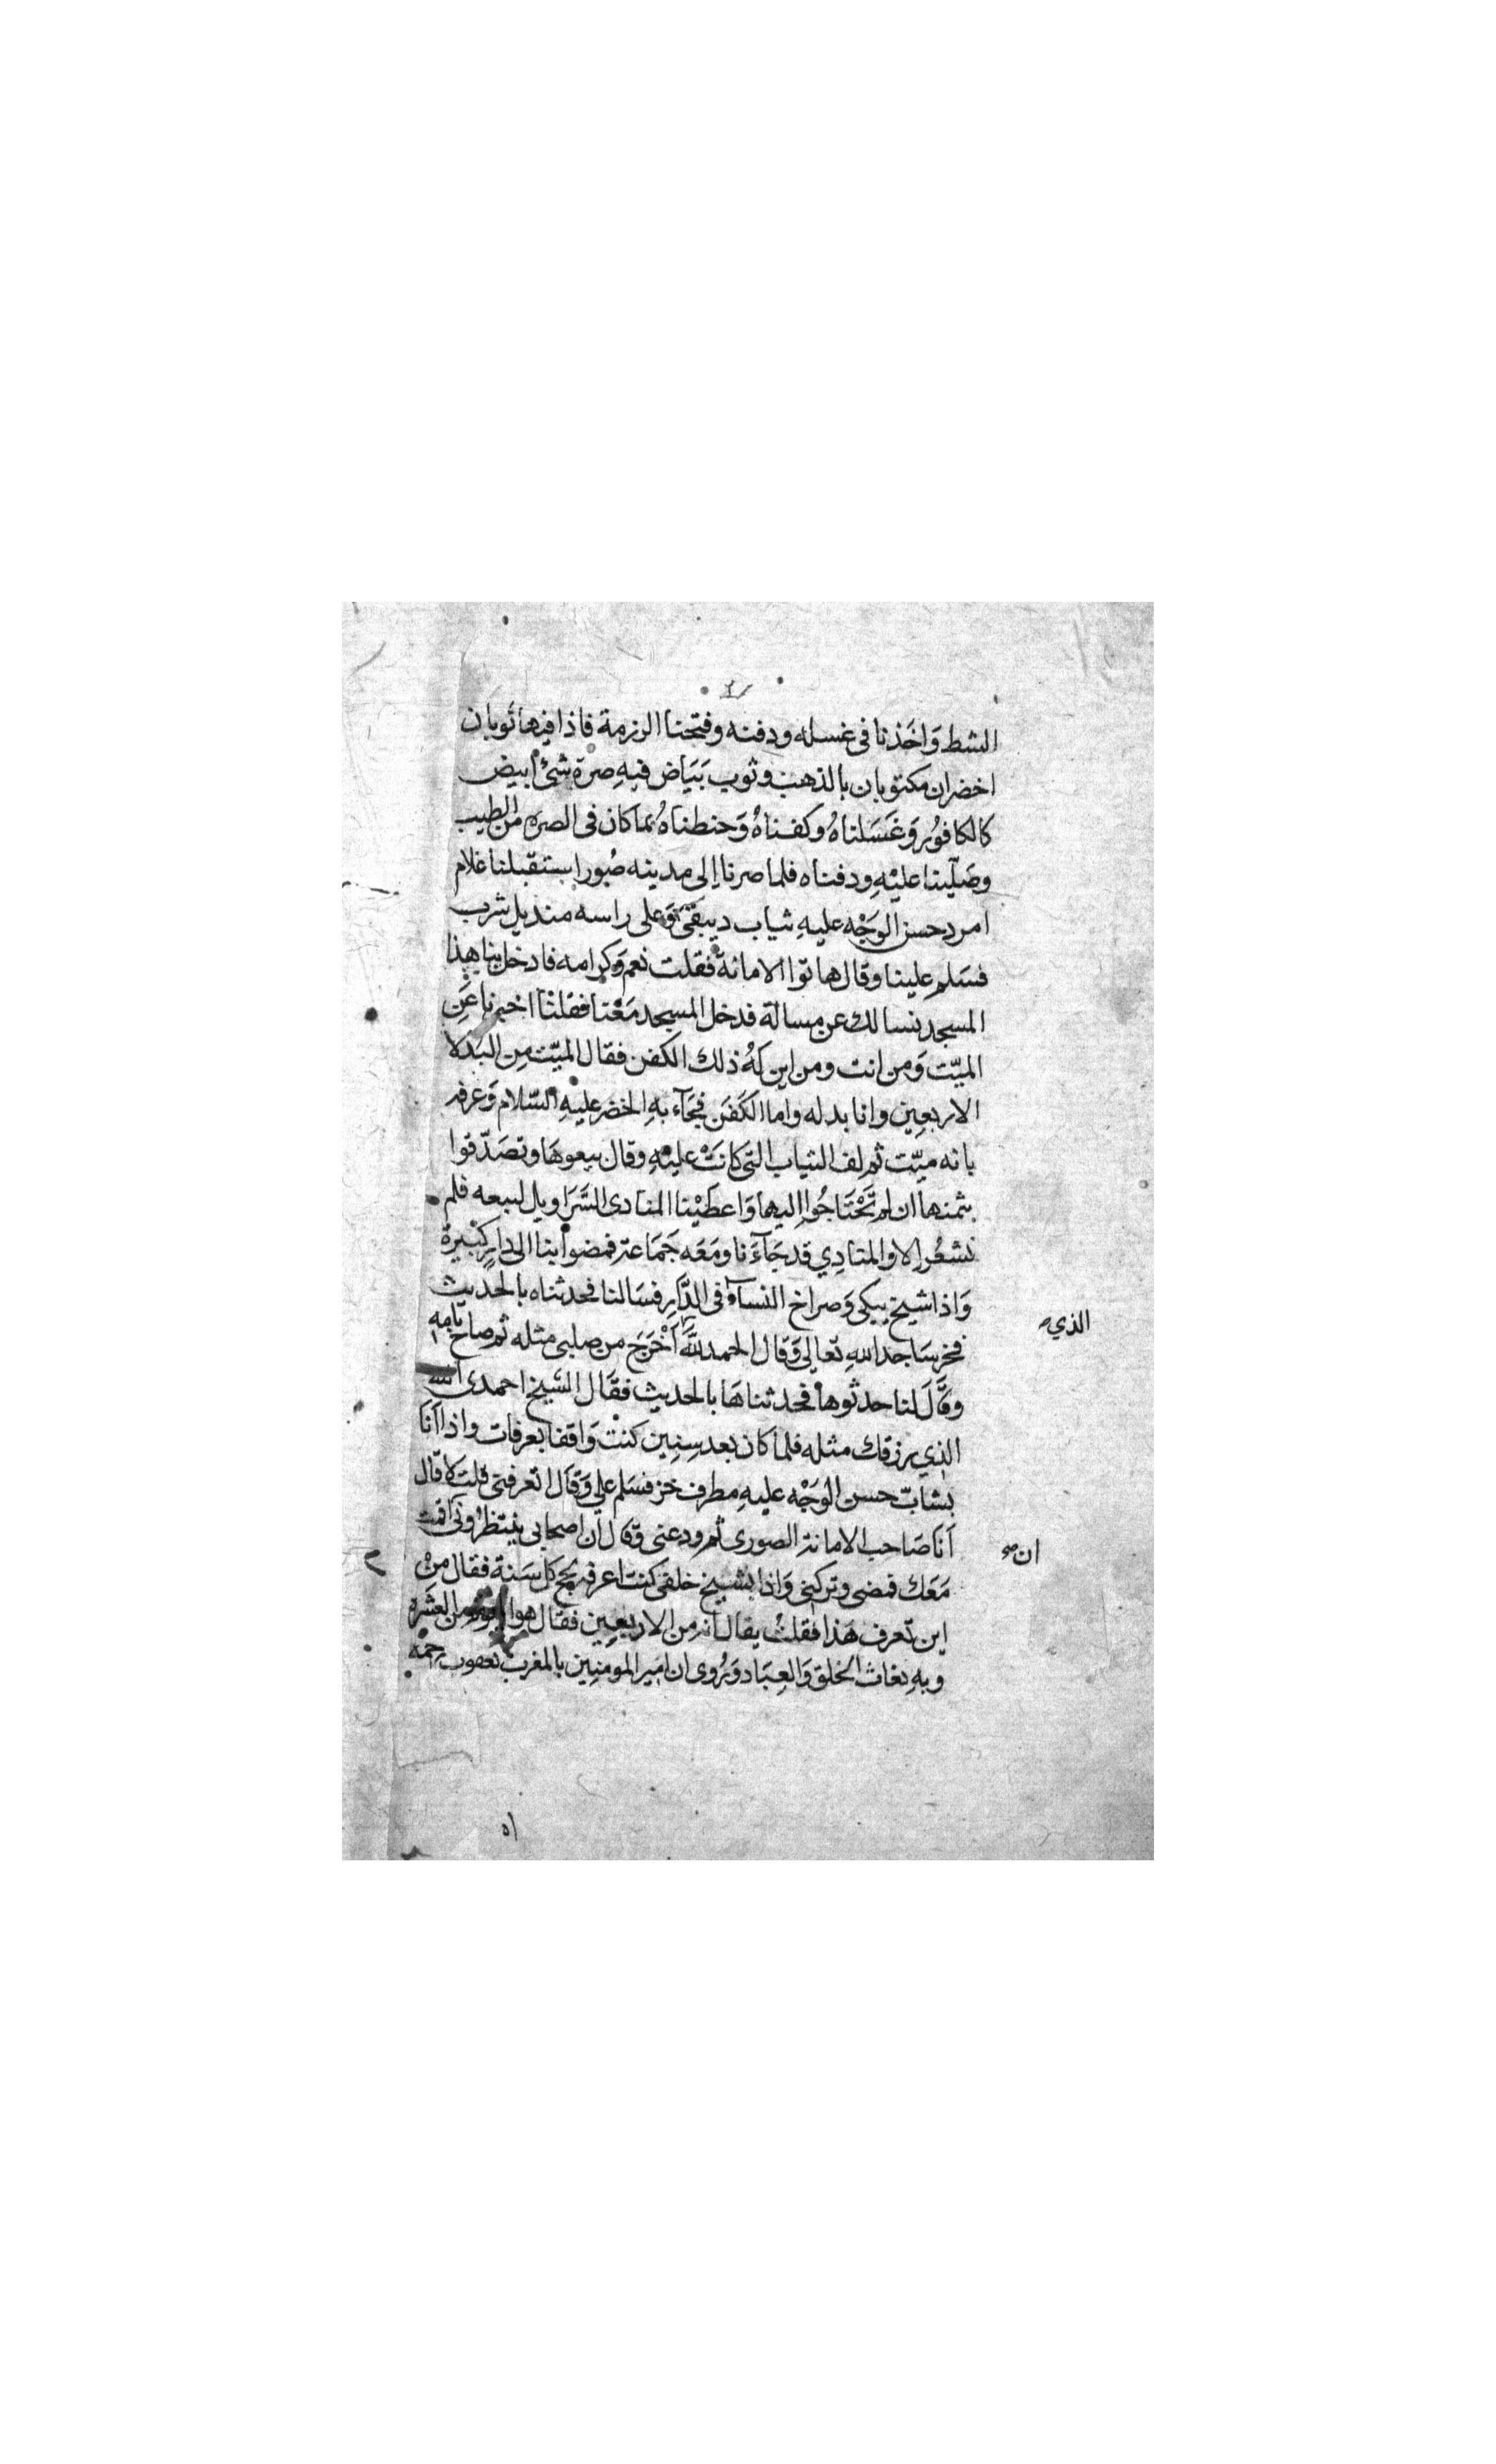 الشط وَاخَذنا فى غسله ودفنه وفتحنا الرزمة فاذا فيها ثوبان
اخضران مكتوبان بالذهب وثوب بَيَاض فيهِ صرة شئ ابيض
كالكافوُر وَغَسَلناهُ وكفناهُ وَحنطناهُ بما كان فى الصره من الطيب
وصَلّينا عليْهِ ودفناه فلما صرنا اِلى مدينه صُور استقبلنا غلام
امرد حسن الوَجْه عليهِ ثياب ديبقىّ وَعلى راسه منديل شرب
فسَلم علينا وقال هاتوا الامانة فقلت نعم وَكرامه فادخل بنا هذا
المسجد نسالك عن مسالة فدخل المسجد مَعْنا فقلنا اخبرنا عَن
الميّت وَمن انت ومن اين لهُ ذلك الكفن فقال الميّت مِن البَدلا
الاربعِين وانا بدله واما الكَفَن فجَآء بهِ الخضر عليهِ السّلام وَعرفه
بانه ميّت ثم لف الثياب التى كانَتْ عليْهِ وقال بيعوهَا وتصَدّقوا
بثمنها ان لم تَحْتَاجُوا اِليها وَاعطَيْنا المنادى السَّرَاويل لبيعه فلم
نشعُر اِلا والمنادِي قد جَآءَنا ومَعَه جَمَاعة فمضوا بنا الى دارٍ كَبْيرة
وَاذا شيخ يبكى وَصراخ النسآء فى الدَّارِ فسَالنا فحدثناه بالحَديث
فخر سَاجد اللهِ تعالى وَقال الحمد للَّه أَخْرَجَ من صلبى مثله ثم صاح بامه
الذي صح
وقَالَ لنا حدثوها فحدثناهَا بالحديث فقَال الشيخ احمدى الله
الذي رزقك مثله فلما كان بعد سِنِين كنت وَاقفا بعرفات واذا اَنَا
بشابّ حسن الوَجْه عليهِ مطرف خز فسَلم علي وَقاَل اتعرفنى قلت لا قال
اَنا صَاحب الامانة الصورى ثم ودعنى وَقال ان اصحابى ينتظرُونى اقمت
ان صح
مَعَك فمضى وتركنِى وَاذا بشيخ خلفى كنت اعرفه يحج كل سَنة فقال منْ
اين تعرف هَذا فقلتُ يقال انه من الاربعِين فقال هو من العشَرة
وبهِ تغاث الخلق وَالعِبَاد وَيُروى ان امَير المومنِين بالمغرب يعقوب رحمه
اه